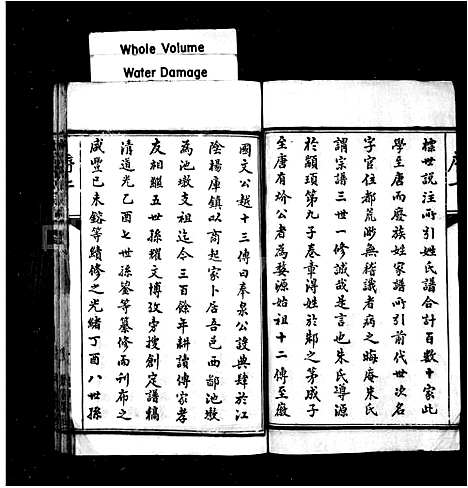 Whole Volume
Water Damage
標世說注所引姓氏譜合計百數十家此
學至唐而廢族姓家譜所引前代世次名
字官位都荒渺無稽識者病之晦庵朱氏
謂宗譜三世一修誠哉是言也朱氏導源
於顓頊第九子卷章得姓於邾之茅成子
至唐有坋公者為婺源始祖十二傳至徽
國文公越十三傳曰奉泉公設典肆於江
陰楊庫鎮以商起家卜居吾邑西鄙池墩
為池墩支祖迄今三百餘年耕讀傳家孝
友相繼五世孫耀文博攷旁搜創定譜稿
清道光乙酉七世孫鋆等纂修而刊布之
咸豐己未鎔等續修之光緒丁酉八世孫